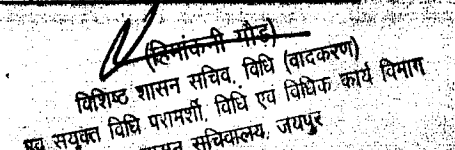 (हिमांकनी गौड)
विशिष्ट शासन सचिव, विधि (वादकरण)
एवं सयुक्त विधि परामर्शी, विधि एवं विधिक कार्य विभाग
सचिवालय, जयपुर